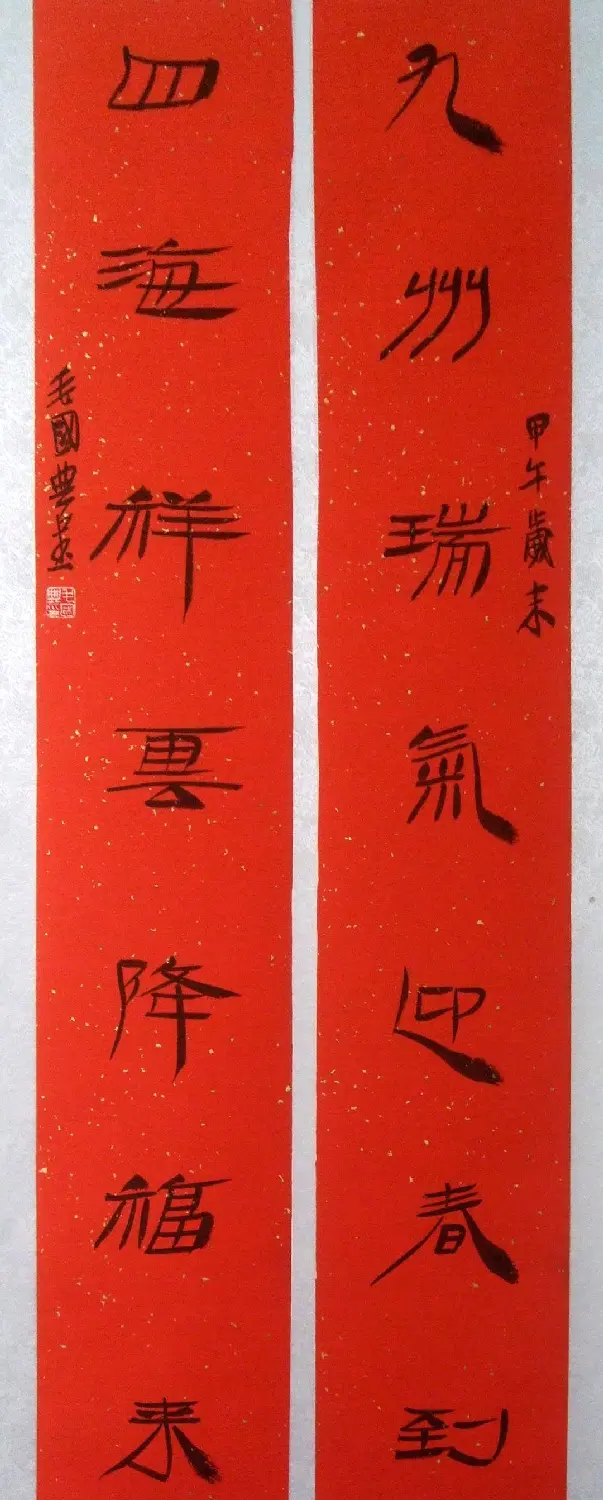 九州瑞氣迎春到
甲午歲末
四海祥雲降福来
毛國典書